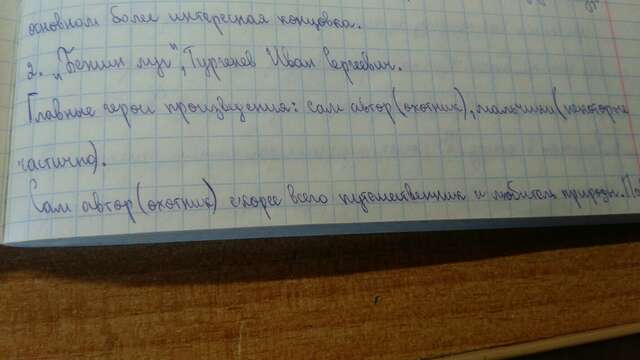 основном более интересная концовка.
2. „Бежин луг", Тургенев Иван Сергеевич.
Главные герои произведения: сам автор(охотник), мальчики(некоторые
частично).
Сам автор(охотник) скорее всего путешественник и любитель природы.